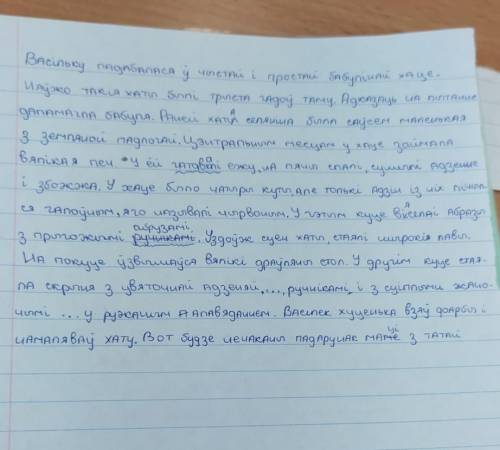 Васільку падабалася ў чыстай і простай бабулінай хаце.
Няўжо такія хаты былі трыста гадоў таму. Адказаць на пытанне
дапамагла бабуля. Раней хата селяніна была саўсем маленькая
з земляной падлогай. Цэнтральным месцам у хаце займала
вялікая печ. У ёй гатавалі ежу, на пячы спалі, сушылі адзенне
і збожжа. У хаце было чатыры куты, але толькі адзін із іх лічыл
ся галоўным, яго называлі чырвоным. У гэтым куце віселі абразы
з прыгожымі абрузамі, ручнікамі. Уздоўж сцен хаты, стаялі шырокія лавы.
На покуце ўзвышаўся вялікі драўляны стол. У другім куце стая-
ла скрыня з святочнай адзеняй,..., ручнікамі, і з сшіплымі жано-
чымі ... у ружачым апавяданнем. Васілек хуценька взяў фарбы і
намаляваў хату. Вот будзе нечаканы падарунак маме з татай